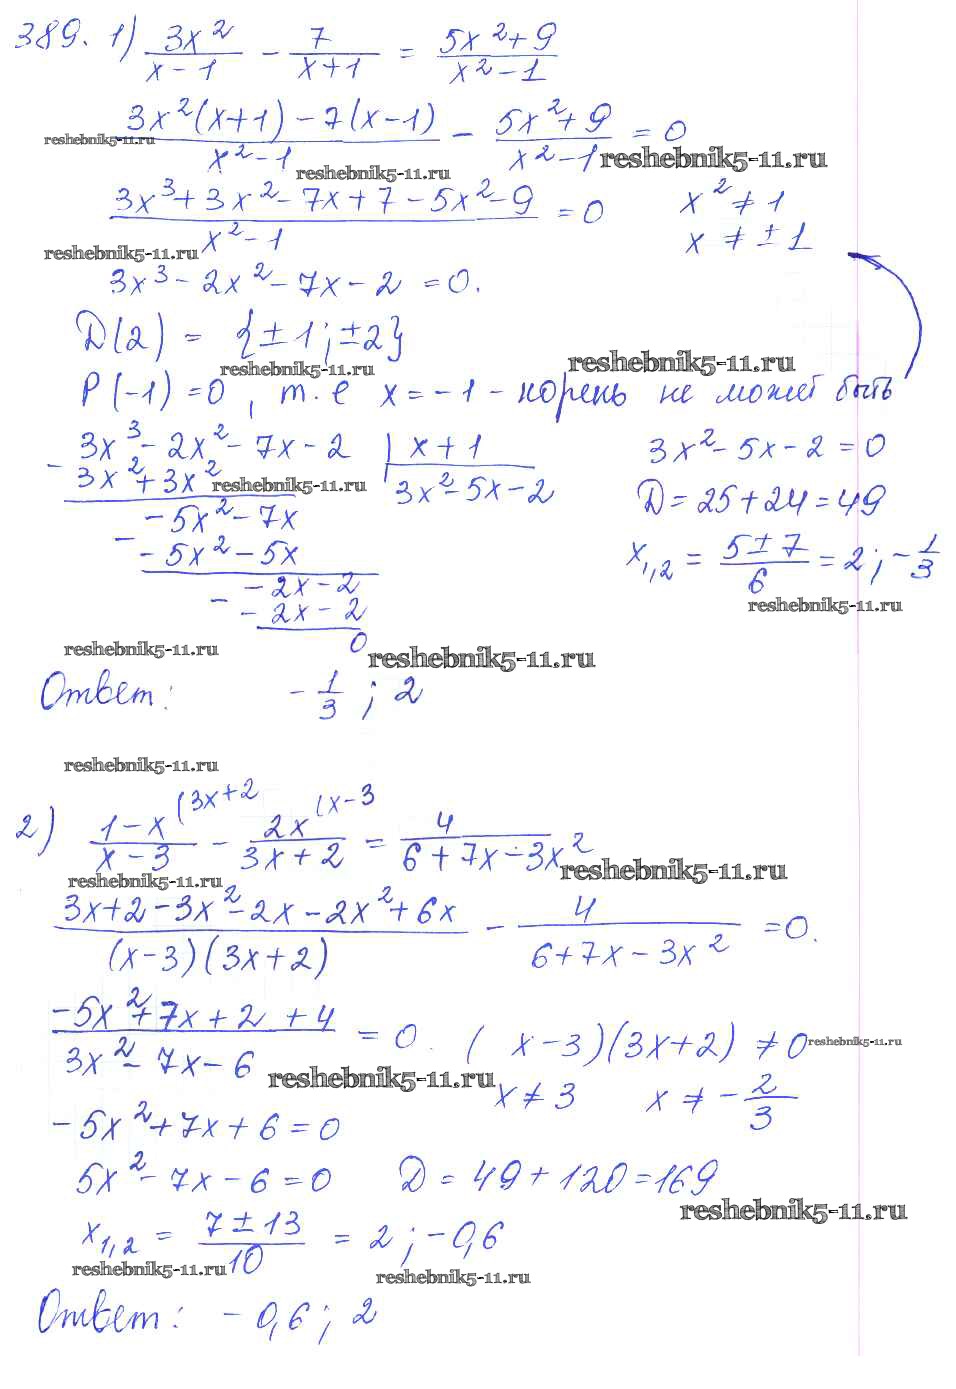 389. 1) 3x²/(x-1) - 7/(x+1) = (5x²+9)/(x²-1)
(3x²(x+1) - 7(x-1))/(x²-1) - (5x²+9)/(x²-1) = 0
reshebnik5-11.ru reshebnik5-11.ru
reshebnik5-11.ru
(3x³+3x²-7x+7-5x²-9)/(x²-1) = 0 x² ≠ 1
reshebnik5-11.ru x ≠ ±1
3x³-2x²-7x-2 = 0.
D(2) = {±1; ±2}
reshebnik5-11.ru reshebnik5-11.ru
P(-1) = 0, т.е x = -1 - корень не может быть
3x³-2x²-7x-2 | x+1 3x²-5x-2 = 0
- 3x²+3x² reshebnik5-11.ru 3x²-5x-2 D = 25+24 = 49
-5x²-7x
- -5x²-5x x₁,₂ = (5±7)/6 = 2; -1/3
-2x-2 reshebnik5-11.ru
- -2x-2
0
reshebnik5-11.ru reshebnik5-11.ru
Ответ: -1/3; 2
reshebnik5-11.ru
2) (1-x)/(x-3) (3x+2 - 2x/(3x+2) (x-3 = 4/(6+7x-3x²)
reshebnik5-11.ru reshebnik5-11.ru
(3x+2-3x²-2x-2x²+6x)/((x-3)(3x+2)) - 4/(6+7x-3x²) = 0.
(-5x²+7x+2+4)/(3x²-7x-6) = 0. (x-3)(3x+2) ≠ 0 reshebnik5-11.ru
reshebnik5-11.ru x ≠ 3 x ≠ -2/3
-5x²+7x+6 = 0
5x²-7x-6 = 0 D = 49+120 = 169
reshebnik5-11.ru
x₁,₂ = (7±13)/10 = 2; -0,6
reshebnik5-11.ru reshebnik5-11.ru
Ответ: -0,6; 2